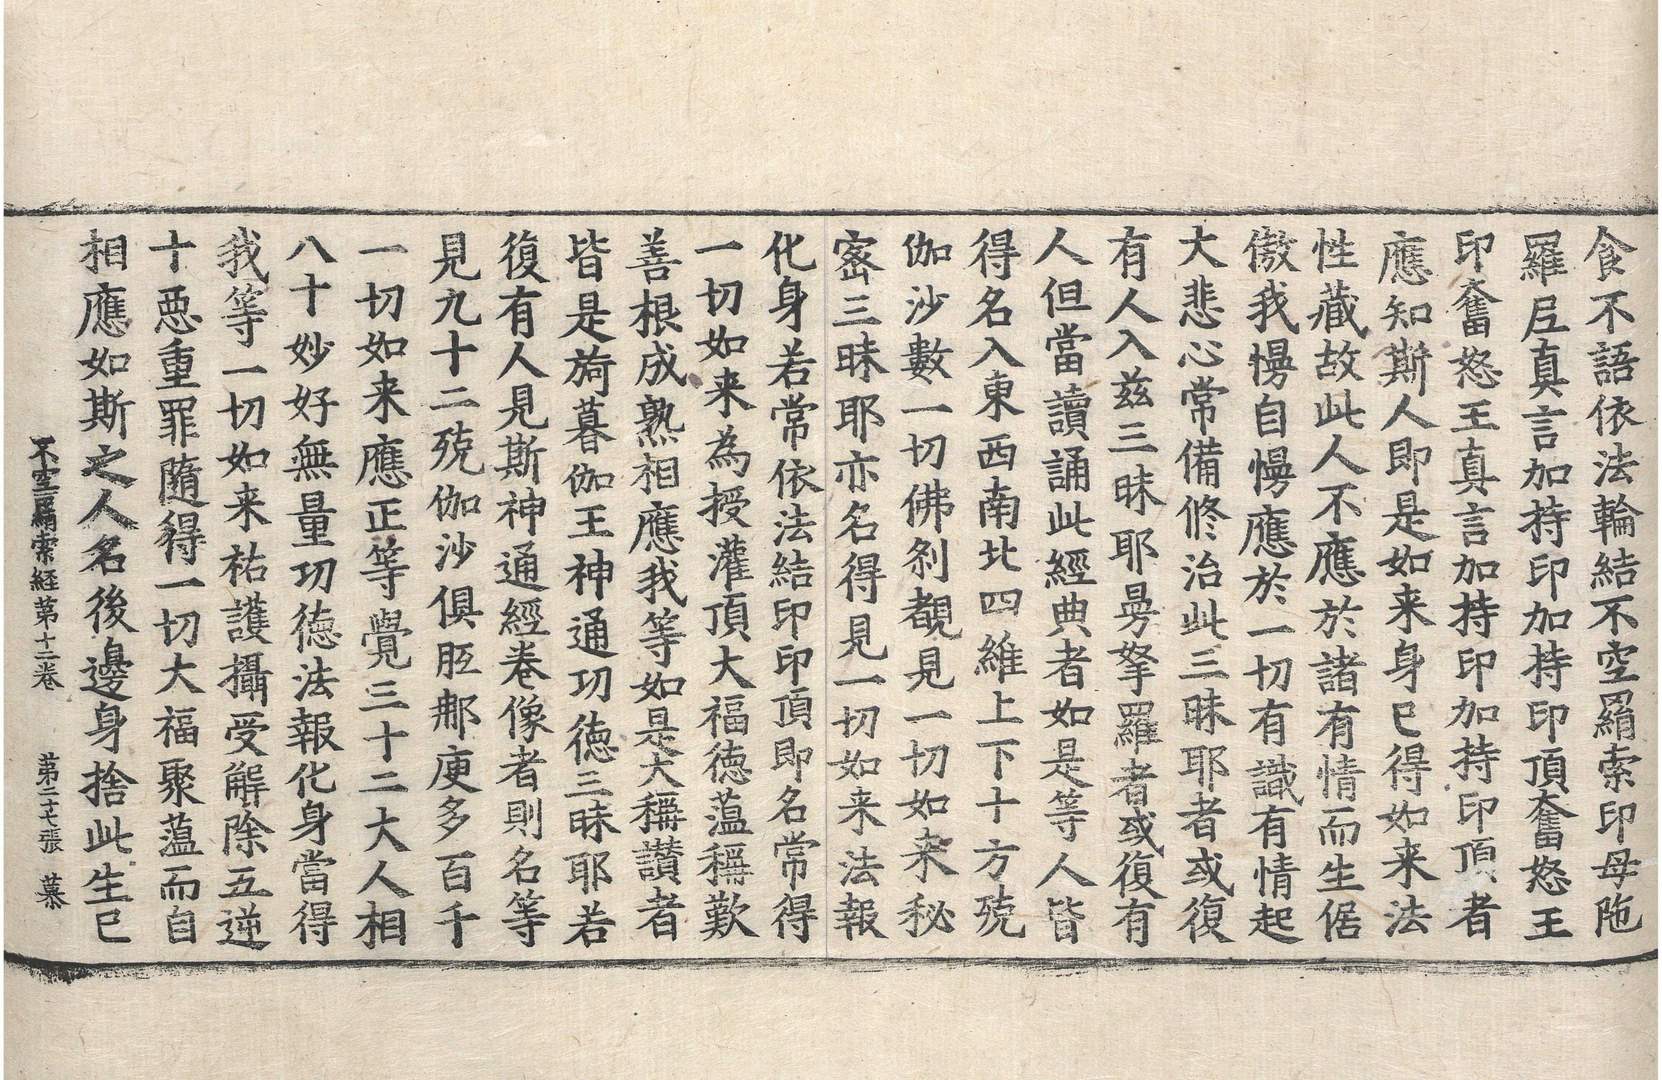 食不語依法輪結不空羂索印母陁
羅尼真言加持印加持印頂奮怒王
印奮怒王真言加持印加持印頂者
應知斯人即是如来身已得如来法
性藏故此人不應於諸有情而生倨
傲我慢自慢應於一切有識有情起
大悲心常備修治此三昧耶者或復
有人入兹三昧耶曼拏羅者或復有
人但當讀誦此經典者如是等人皆
得名入東西南北四維上下十方殑
伽沙數一切佛刹覩見一切如来秘
密三昧耶亦名得見一切如来法報
化身若常依法結印印頂即名常得
一切如来為授灌頂大福徳蕰稱歎
善根成熟相應我等如是大稱讃者
皆是旖暮伽王神通功徳三昧耶若
復有人見斯神通經卷像者則名等
見九十二殑伽沙俱胝那庾多百千
一切如来應正等覺三十二大人相
八十妙好無量功徳法報化身當得
我等一切如来祐護攝受解除五逆
十惡重罪隨得一切大福聚蕰而自
相應如斯之人名後邊身捨此生已
不空羂索經第十二卷 第二十七張 慕